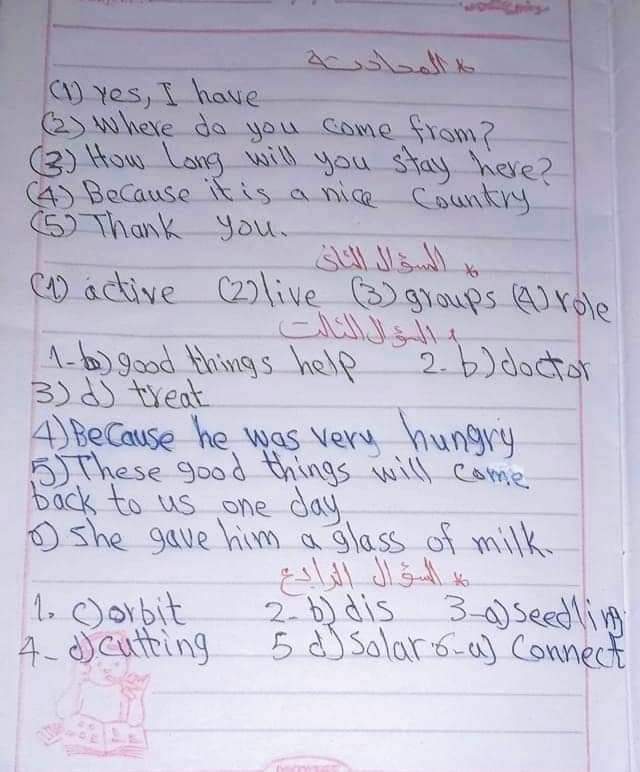 * المحادثة
(1) Yes, I have
(2) Where do you come from?
(3) How long will you stay here?
(4) Because it is a nice Country
(5) Thank you.
* السؤال الثانى
(1) active (2) live (3) groups (4) role
* السؤال الثالث
1- b) good things help 2- b) doctor
3) d) treat
4) Because he was very hungry
5) These good things will come
back to us one day
6) She gave him a glass of milk.
* السؤال الرابع
1. c) orbit 2- b) dis 3- a) seedling
4- d) cutting 5 d) Solar 6- a) Connect